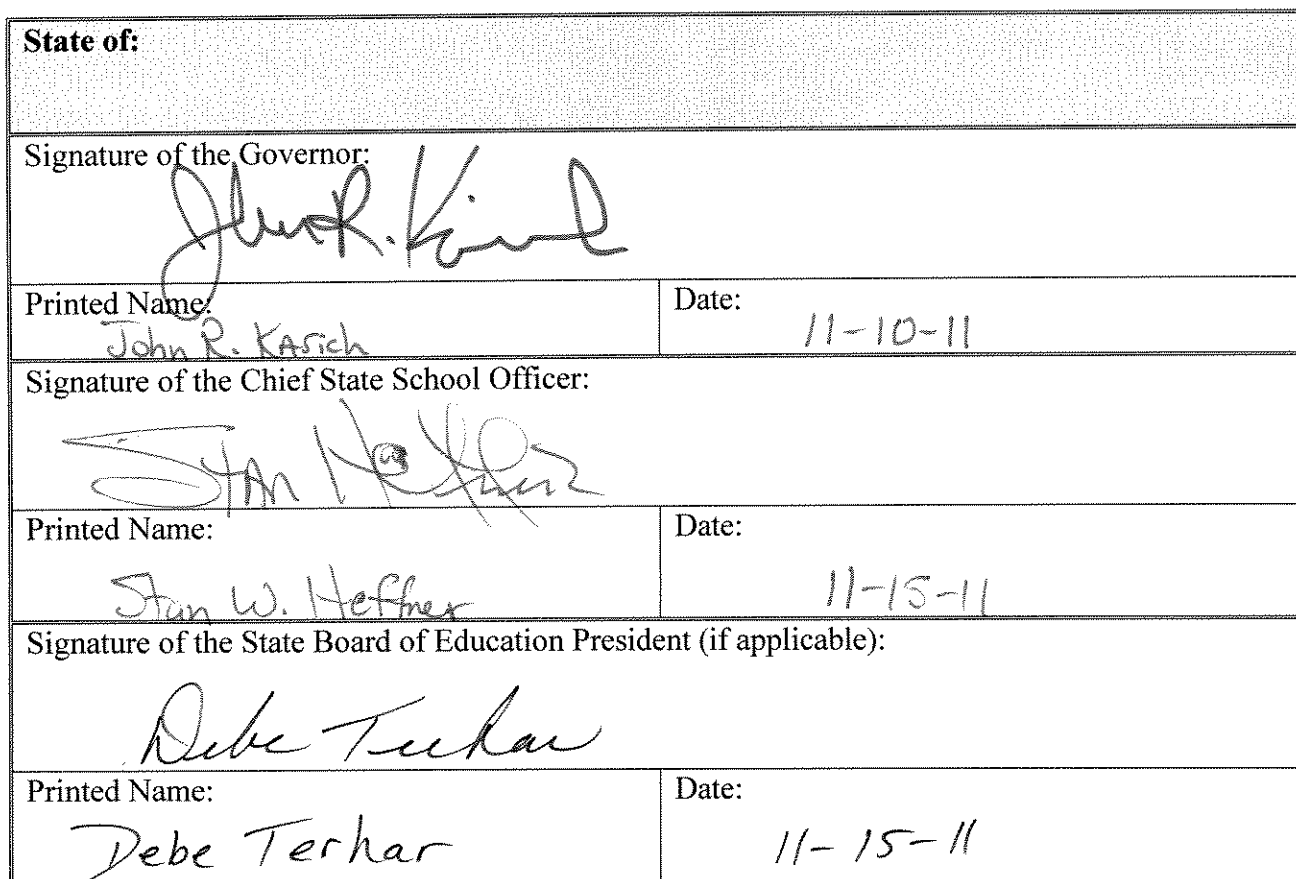 State of:
Signature of the Governor:
John R. Kasich
Printed Name:
John R. Kasich
Date:
11-10-11
Signature of the Chief State School Officer:
Stan Heffner
Printed Name:
Stan W. Heffner
Date:
11-15-11
Signature of the State Board of Education President (if applicable):
Debe Terhar
Printed Name:
Debe Terhar
Date:
11-15-11